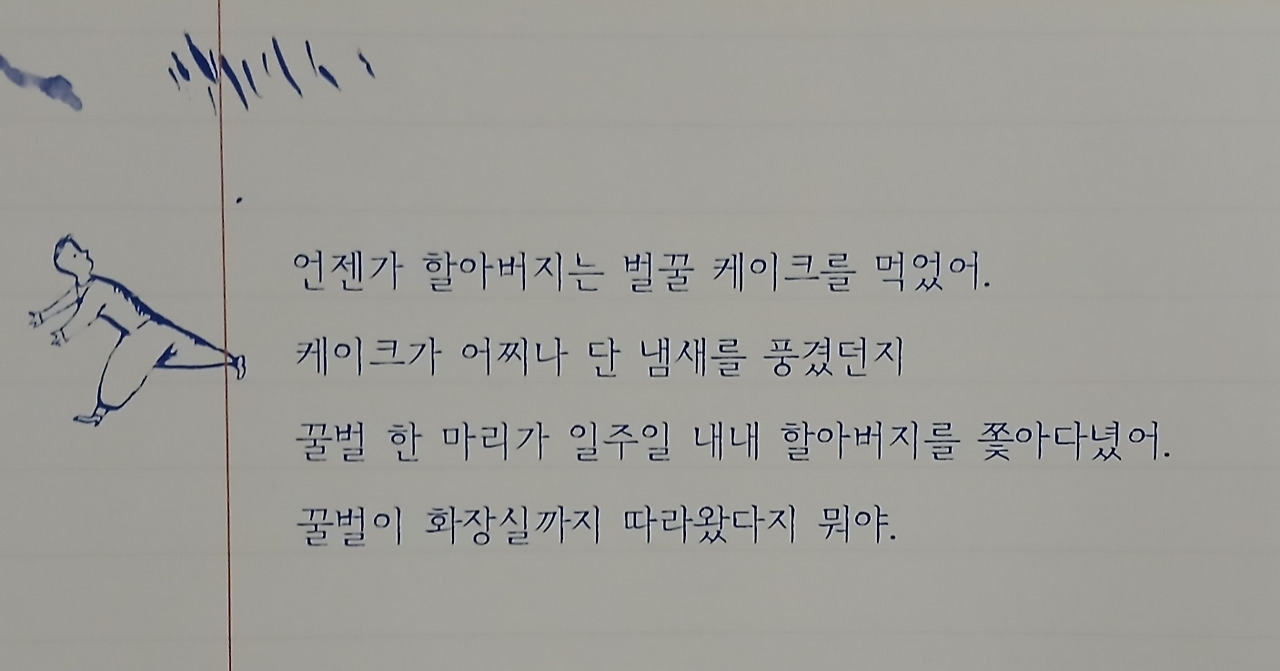 언젠가 할아버지는 벌꿀 케이크를 먹었어.
케이크가 어찌나 단 냄새를 풍겼던지
꿀벌 한 마리가 일주일 내내 할아버지를 쫓아다녔어.
꿀벌이 화장실까지 따라왔다지 뭐야.